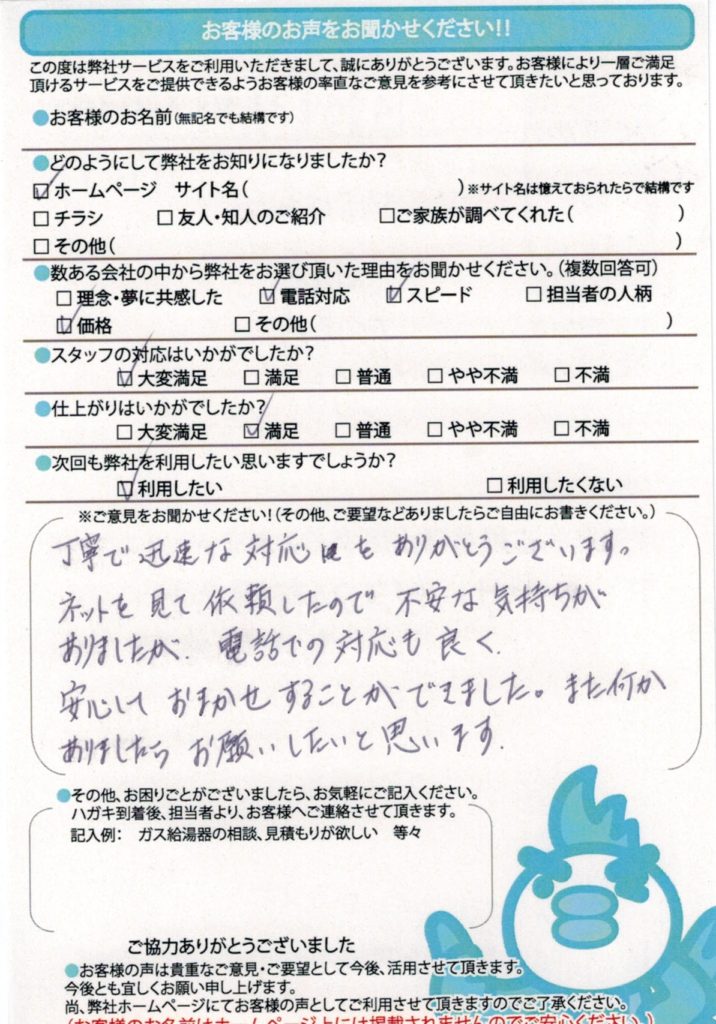 お客様のお声をお聞かせください!!
この度は弊社サービスをご利用いただきまして、誠にありがとうございます。お客様により一層ご満足
頂けるサービスをご提供できるようお客様の率直なご意見を参考にさせて頂きたいと思っております。
●お客様のお名前(無記名でも結構です)
●どのようにして弊社をお知りになりましたか?
☑ホームページ サイト名( )※サイト名は憶えておられたらで結構です
□チラシ □友人・知人のご紹介 □ご家族が調べてくれた( )
□その他( )
●数ある会社の中から弊社をお選び頂いた理由をお聞かせください。(複数回答可)
□理念・夢に共感した ☑電話対応 ☑スピード □担当者の人柄
☑価格 □その他( )
●スタッフの対応はいかがでしたか?
☑大変満足 □満足 □普通 □やや不満 □不満
●仕上がりはいかがでしたか?
□大変満足 ☑満足 □普通 □やや不満 □不満
●次回も弊社を利用したい思いますでしょうか?
☑利用したい □利用したくない
※ご意見をお聞かせください!(その他、ご要望などありましたらご自由にお書きください。)
丁寧で迅速な対応をありがとうございます。
ネットを見て依頼したので不安な気持ちが
ありましたが、電話での対応も良く、
安心しておまかせすることができました。また何か
ありましたらお願いしたいと思います。
●その他、お困りごとがございましたら、お気軽にご記入ください。
ハガキ到着後、担当者より、お客様へご連絡させて頂きます。
記入例: ガス給湯器の相談、見積もりが欲しい 等々
ご協力ありがとうございました
●お客様の声は貴重なご意見・ご要望として今後、活用させて頂きます。
今後とも宜しくお願い申し上げます。
尚、弊社ホームページにてお客様の声としてご利用させて頂きますのでご了承ください。
(お客様のお名前はホームページ上には掲載されませんのでご安心ください。)